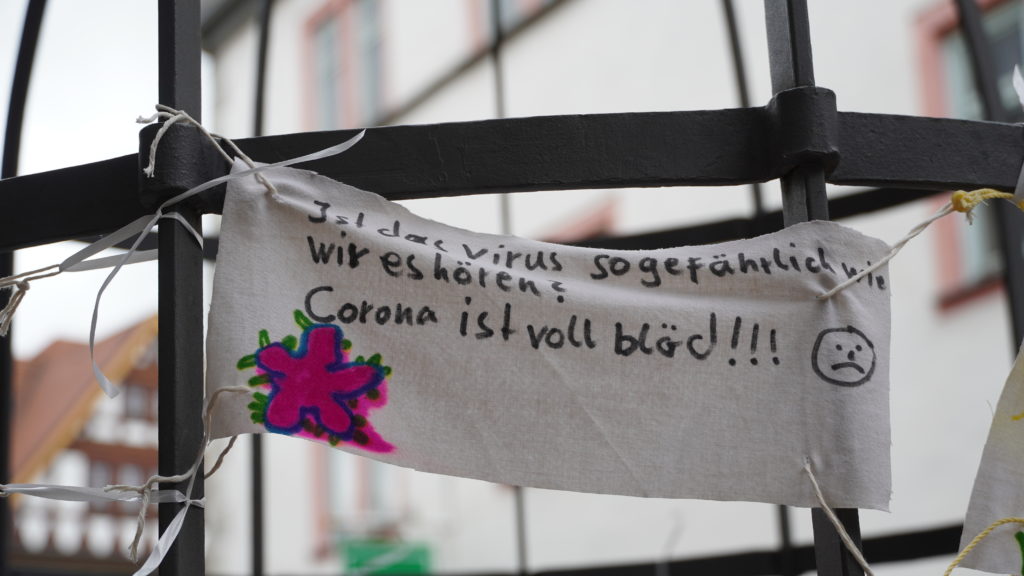 Ist das virus so gefährlich wie
wir es hören?
Corona ist voll blöd!!!